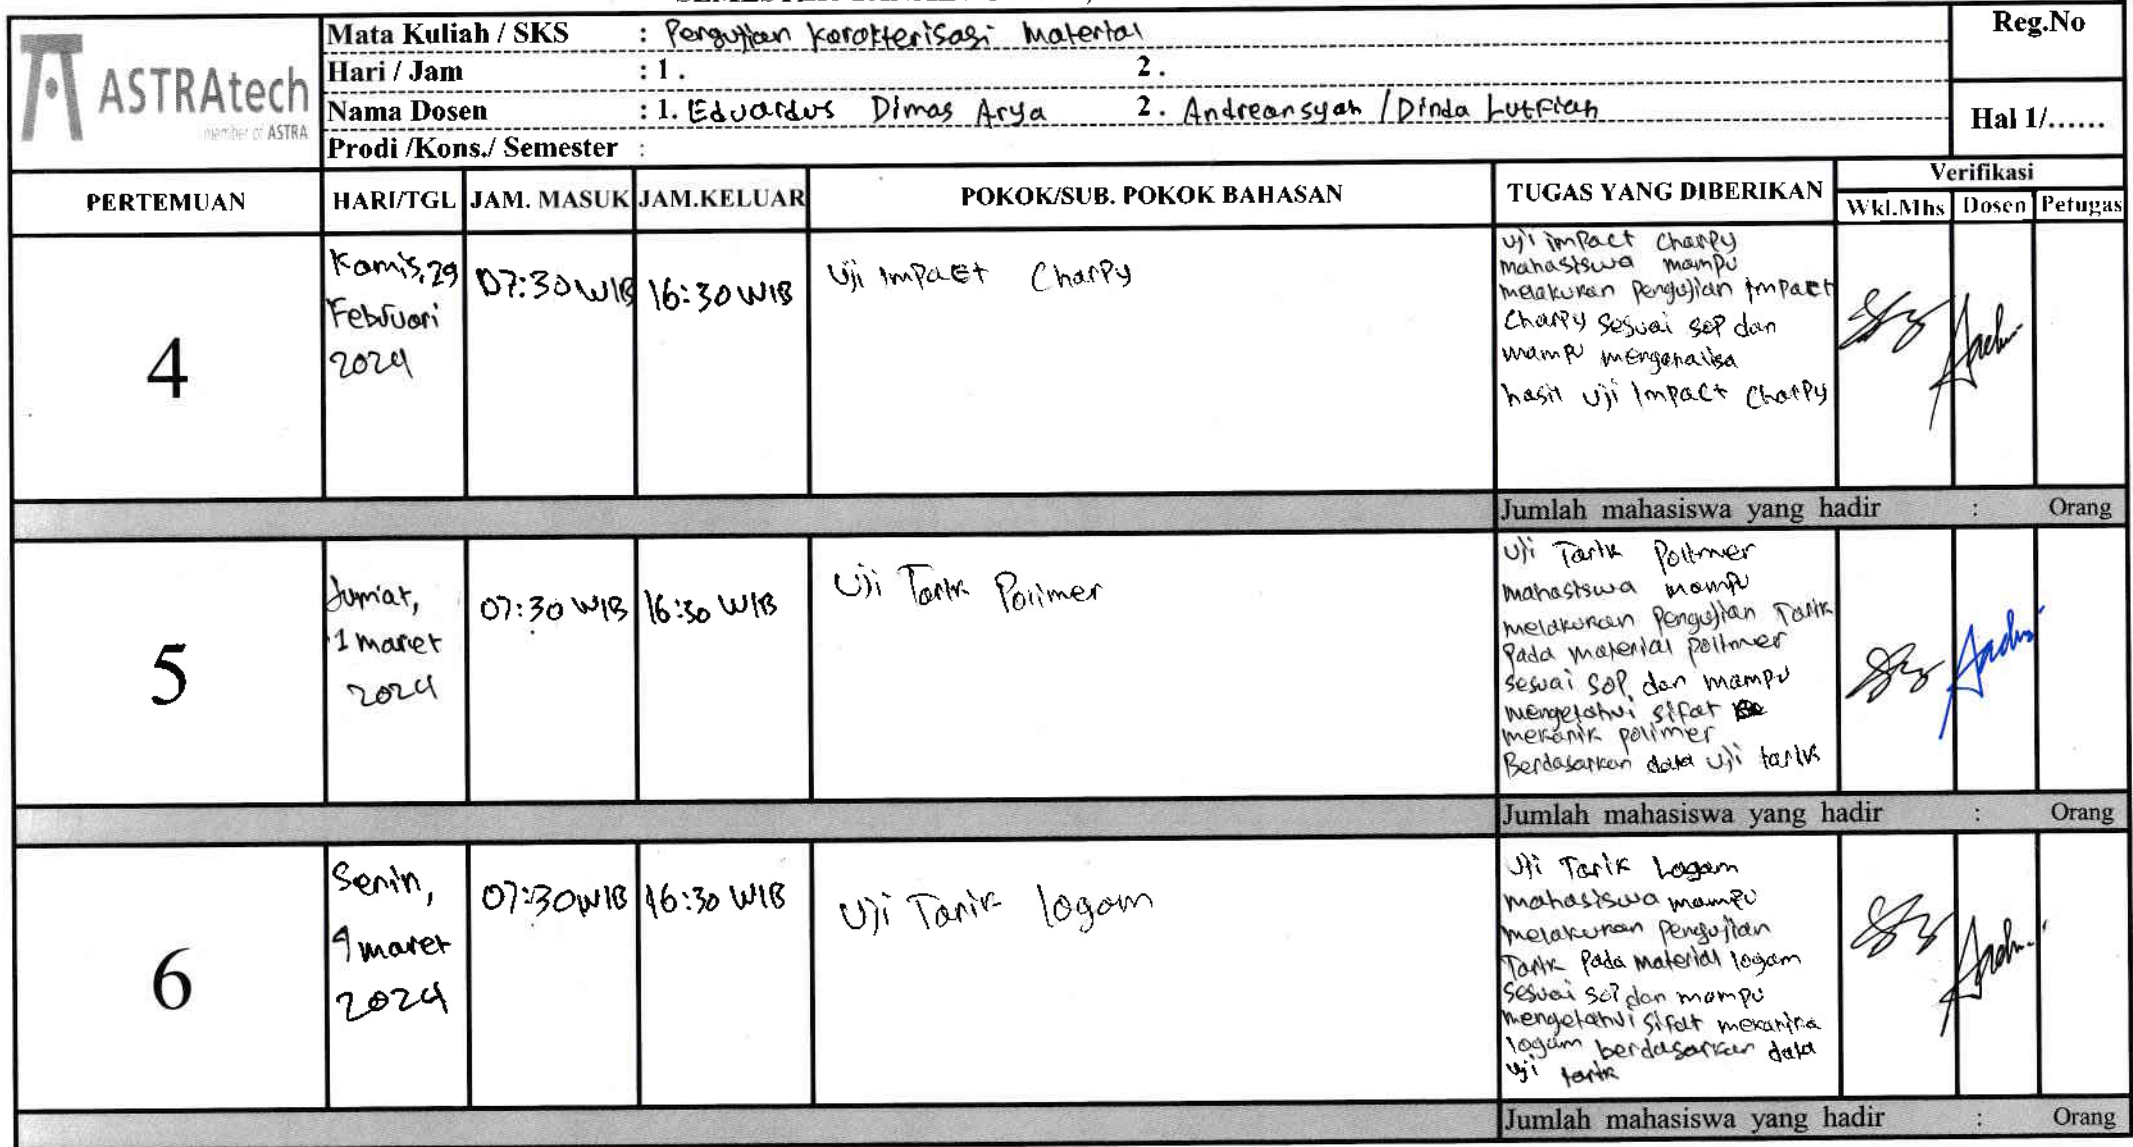 Mata Kuliah / SKS : Pengujian Karakterisasi Material
Reg.No
Hari / Jam : 1. 2.
ASTRAtech
member of ASTRA
Nama Dosen : 1. Eduardus Dimas Arya 2. Andreansyah / Dinda Lutfiah
Hal 1/......
Prodi /Kons./ Semester :
PERTEMUAN HARI/TGL JAM. MASUK JAM.KELUAR POKOK/SUB. POKOK BAHASAN TUGAS YANG DIBERIKAN Verifikasi
Wkl.Mhs Dosen Petugas
4
Kamis, 29
Februari
2024
07:30 WIB
16:30 WIB
Uji Impact Charpy
Uji impact Charpy
mahasiswa mampu
melakukan Pengujian Impact
Charpy sesuai sop dan
mampu menganalisa
hasil uji Impact Charpy
Jumlah mahasiswa yang hadir : Orang
5
Jum'at,
1 maret
2024
07:30 WIB
16:30 WIB
Uji Tarik Polimer
Uji Tarik Polimer
mahasiswa mampu
melakukan Pengujian Tarik
Pada material polimer
sesuai SOP dan mampu
mengetahui sifat
mekanik polimer
Berdasarkan data Uji tarik
Jumlah mahasiswa yang hadir : Orang
6
Senin,
4 maret
2024
07:30 WIB
16:30 WIB
Uji Tarik logam
Uji Tarik Logam
mahasiswa mampu
melakukan Pengujian
Tarik Pada material logam
sesuai SOP dan mampu
mengetahui sifat mekanika
logam berdasarkan data
uji tarik
Jumlah mahasiswa yang hadir : Orang